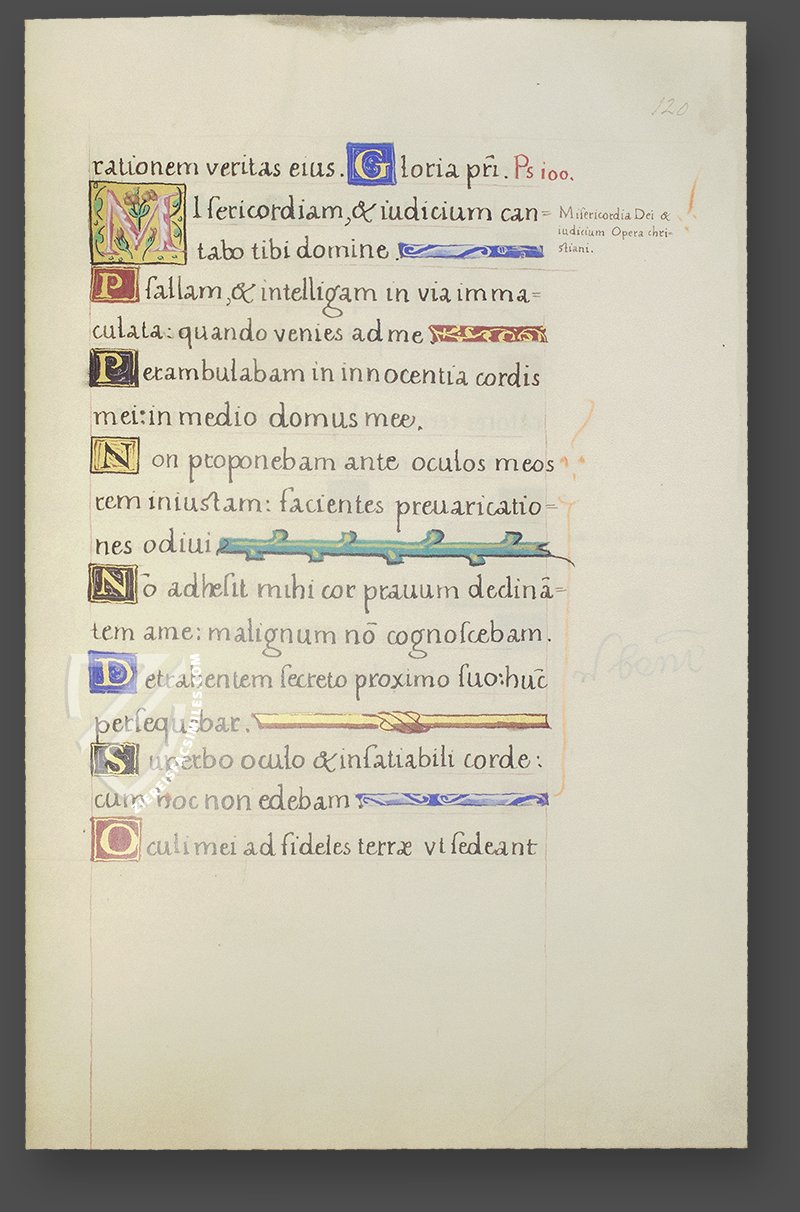 120
rationem veritas eius. Gloria pr̃i. Ps 100.
MIſericordiam, & iudicium can=
tabo tibi domine.
Miſericordia Dei &
iudicium Opera chri-
stiani.
Pſallam, & intelligam in via imma=
culata: quando venies ad me
Perambulabam in innocentia cordis
mei: in medio domus mee.
Non proponebam ante oculos meos
rem iniustam: facientes preuaricatio=
nes odiui
Nō adheſit mihi cor prauum declinā=
tem a me: malignum nō cognoſcebam.
Detrahentem ſecreto proximo ſuo: huc̄
perſequebar.
Superbo oculo & inſatiabili corde:
cum hoc non edebam
Oculi mei ad fideles terræ vt ſedeant